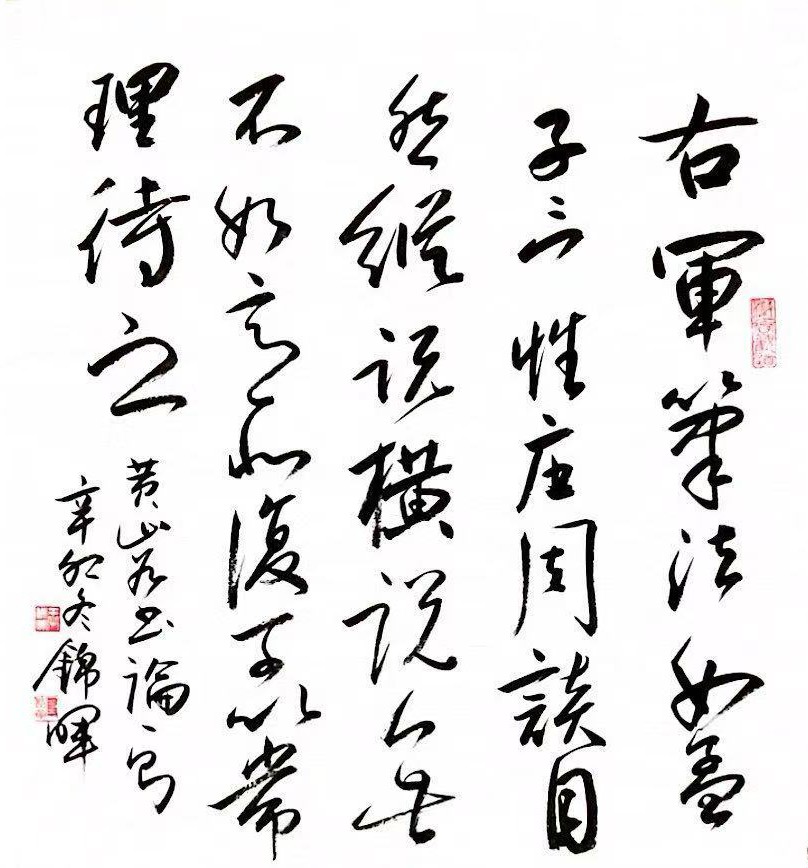 右軍筆法如孟
子言性庄周談自
然縱说橫説無
不如意非復可以常
理待之
黄山谷书論句
辛卯冬錦暉